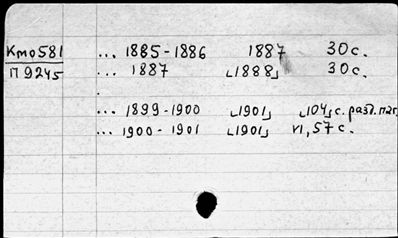 Кмо581 ... 1885-1886 1887 30 с.
П 9245 ... 1887 ⌞1888⌟ 30 с.
.
... 1899-1900 ⌞1901⌟ ⌞104⌟ с. разд. паг.
... 1900-1901 ⌞1901⌟ VI, 57 с.